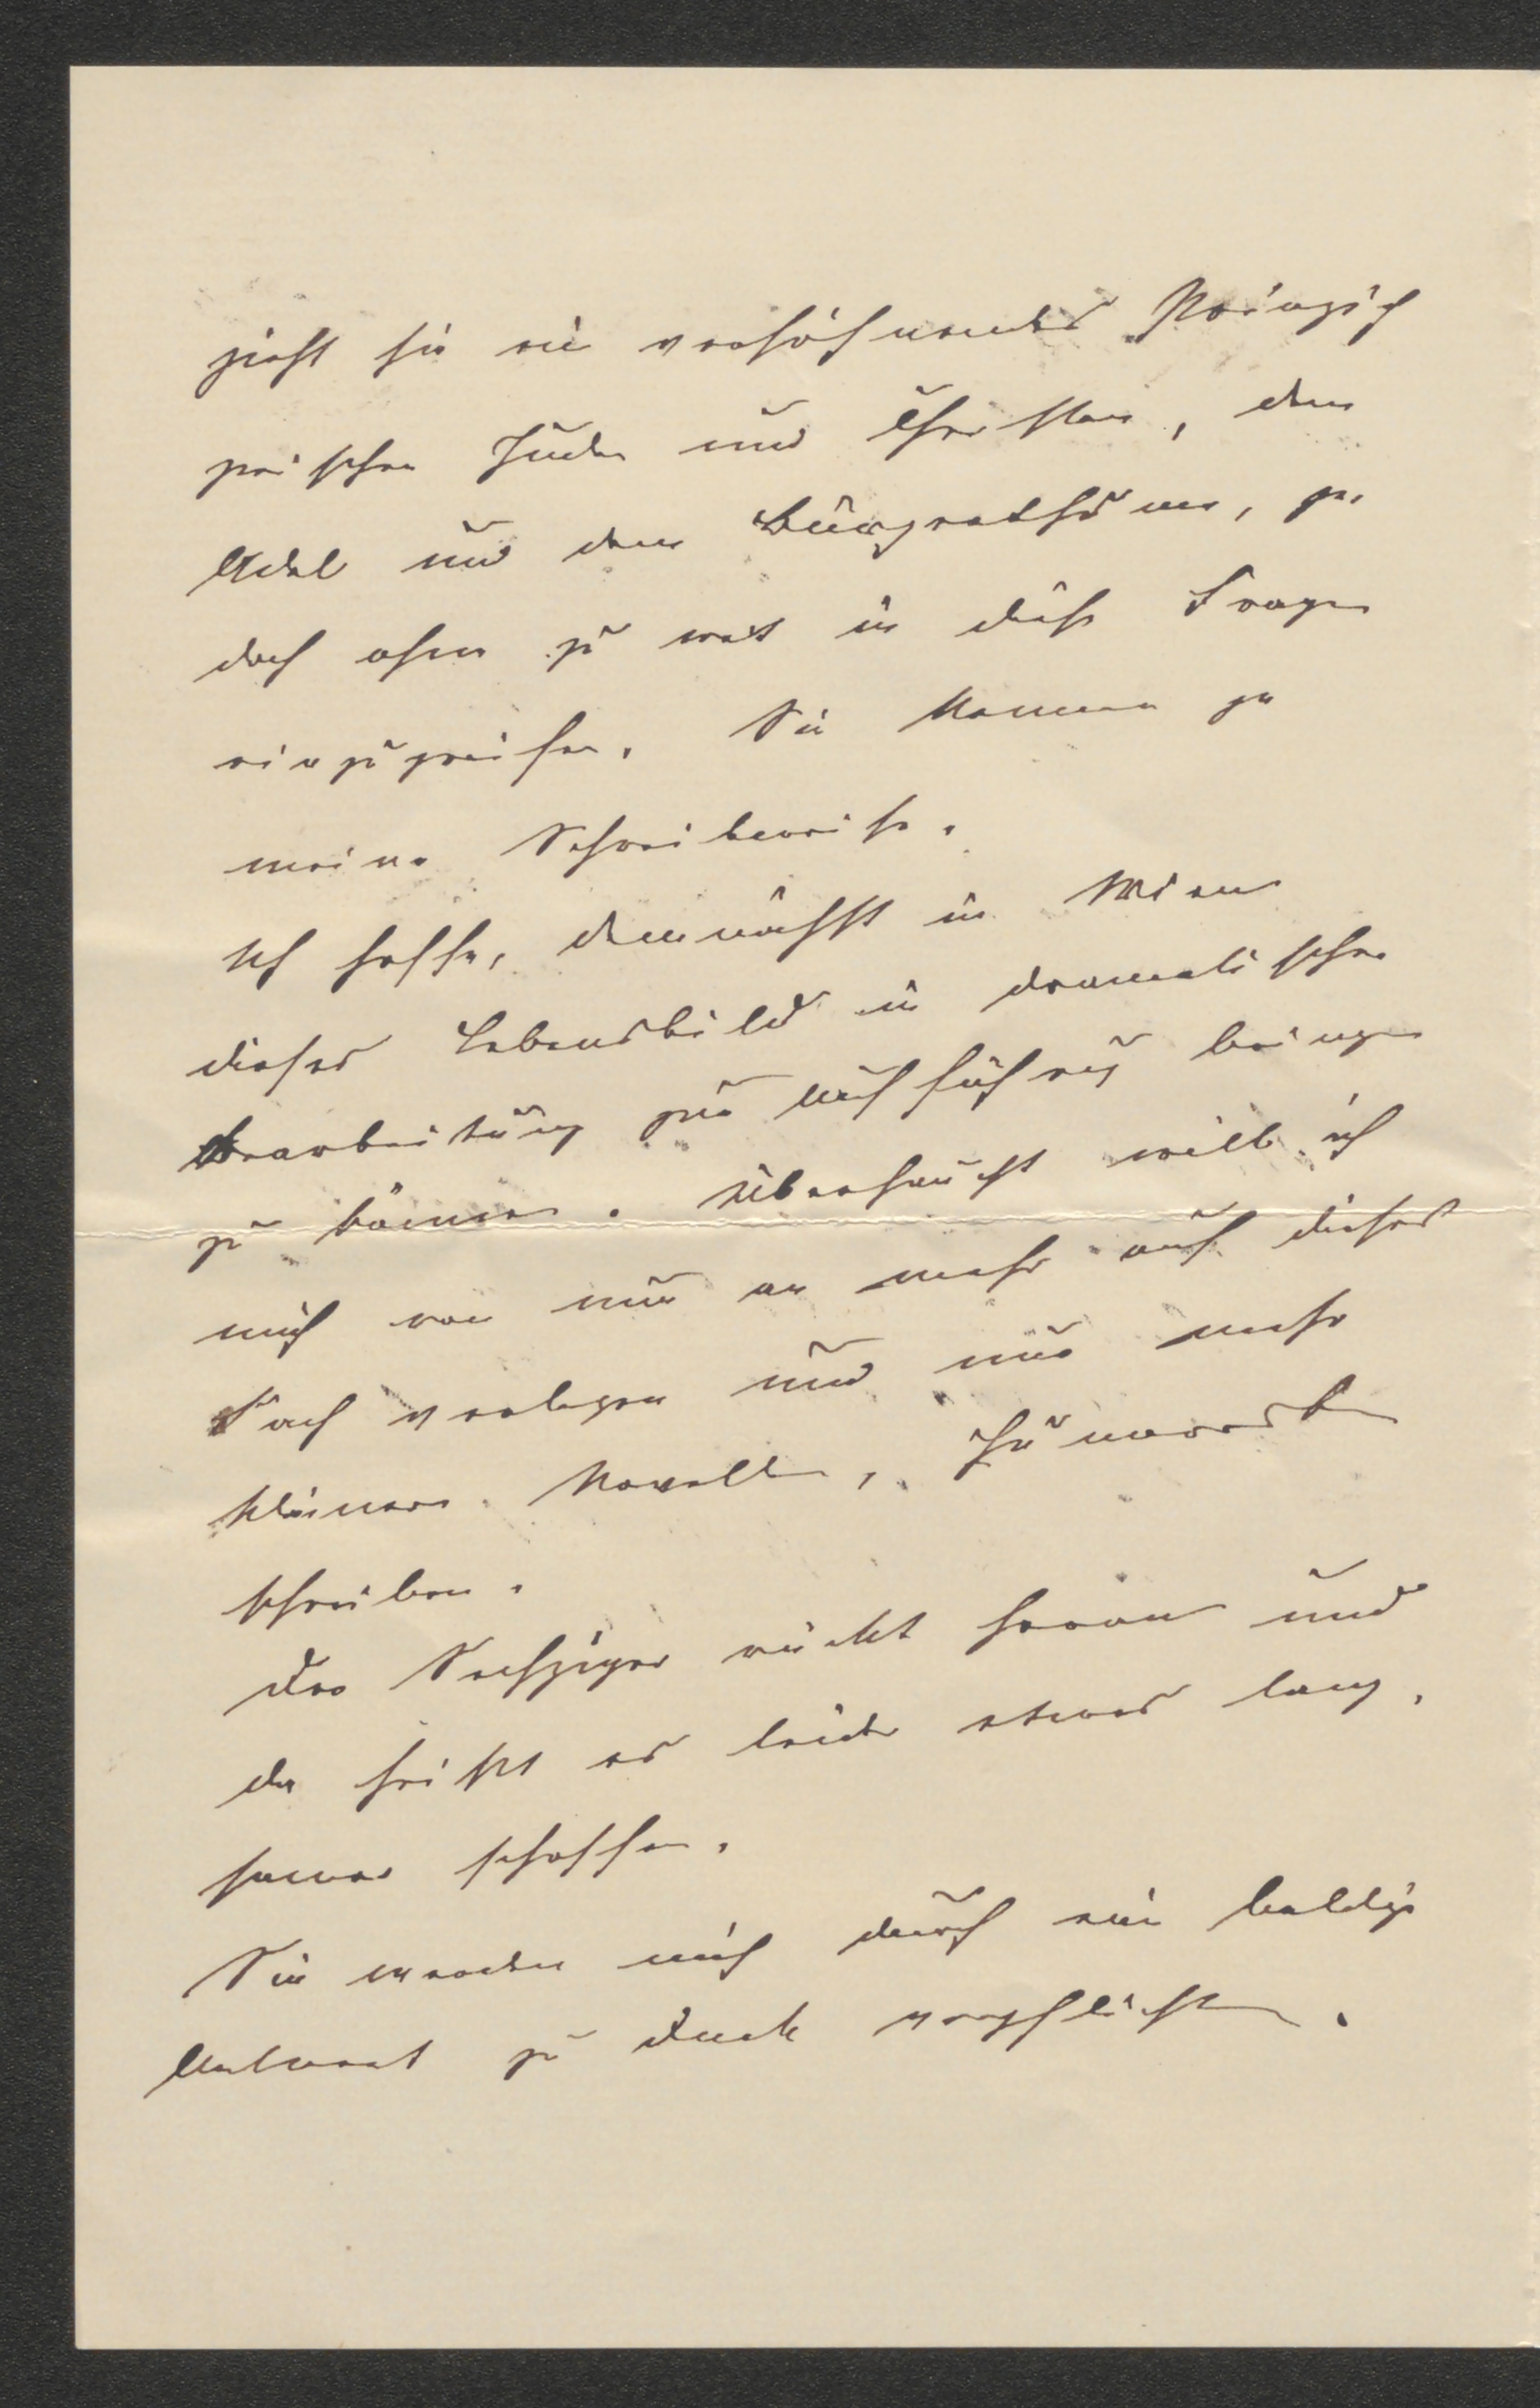 zieht hie ein versöhnendes Prinzip
zwischen Juden und Christen, dem
Adel und dem Bürgerthum, je
doch ohne zu weit in diese Fragen
einzugreifen. Sie kennen ja
meine Schreibweise.
Ich hoffe, demnächst in Wien
dieses Lebensbild in dramatischer
Bearbeitung zur Aufführung bringen
zu können. Überhaupt will ich
mich von nun an mehr auf dieses
Fach verlegen und nur mehr
kleinere Novellen, Humoresken
schreiben.
Der Sechziger rückt heran und
da heißt es leider etwas lang-
samer schaffen.
Sie werden mich durch eine baldige
Antwort zu Dank verpflichten.